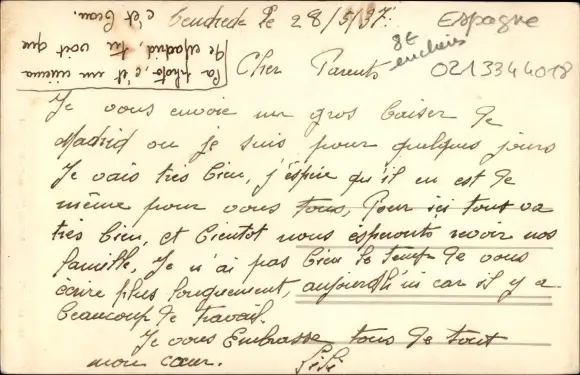 Vendredi le 28/5/37.
Espagne
8€
enchères
0213344018
La photo, c'est un cinéma
de Madrid, tu voit que
c'est beau.
Cher Parents
Je vous envoie un gros baiser de
Madrid ou je suis pour quelques jours
Je vais très bien, j'éspère qu'il en est de
même pour vous tous, Pour ici tout va
très bien, et bientot nous ésperonts revoir nos
famille, Je n'ai pas bien le temps de vous
écrire plus longuement, aujourd'h'ui car il y a
beaucoup de travail.
Je vous Embrasse tous de tout
mon cœur.